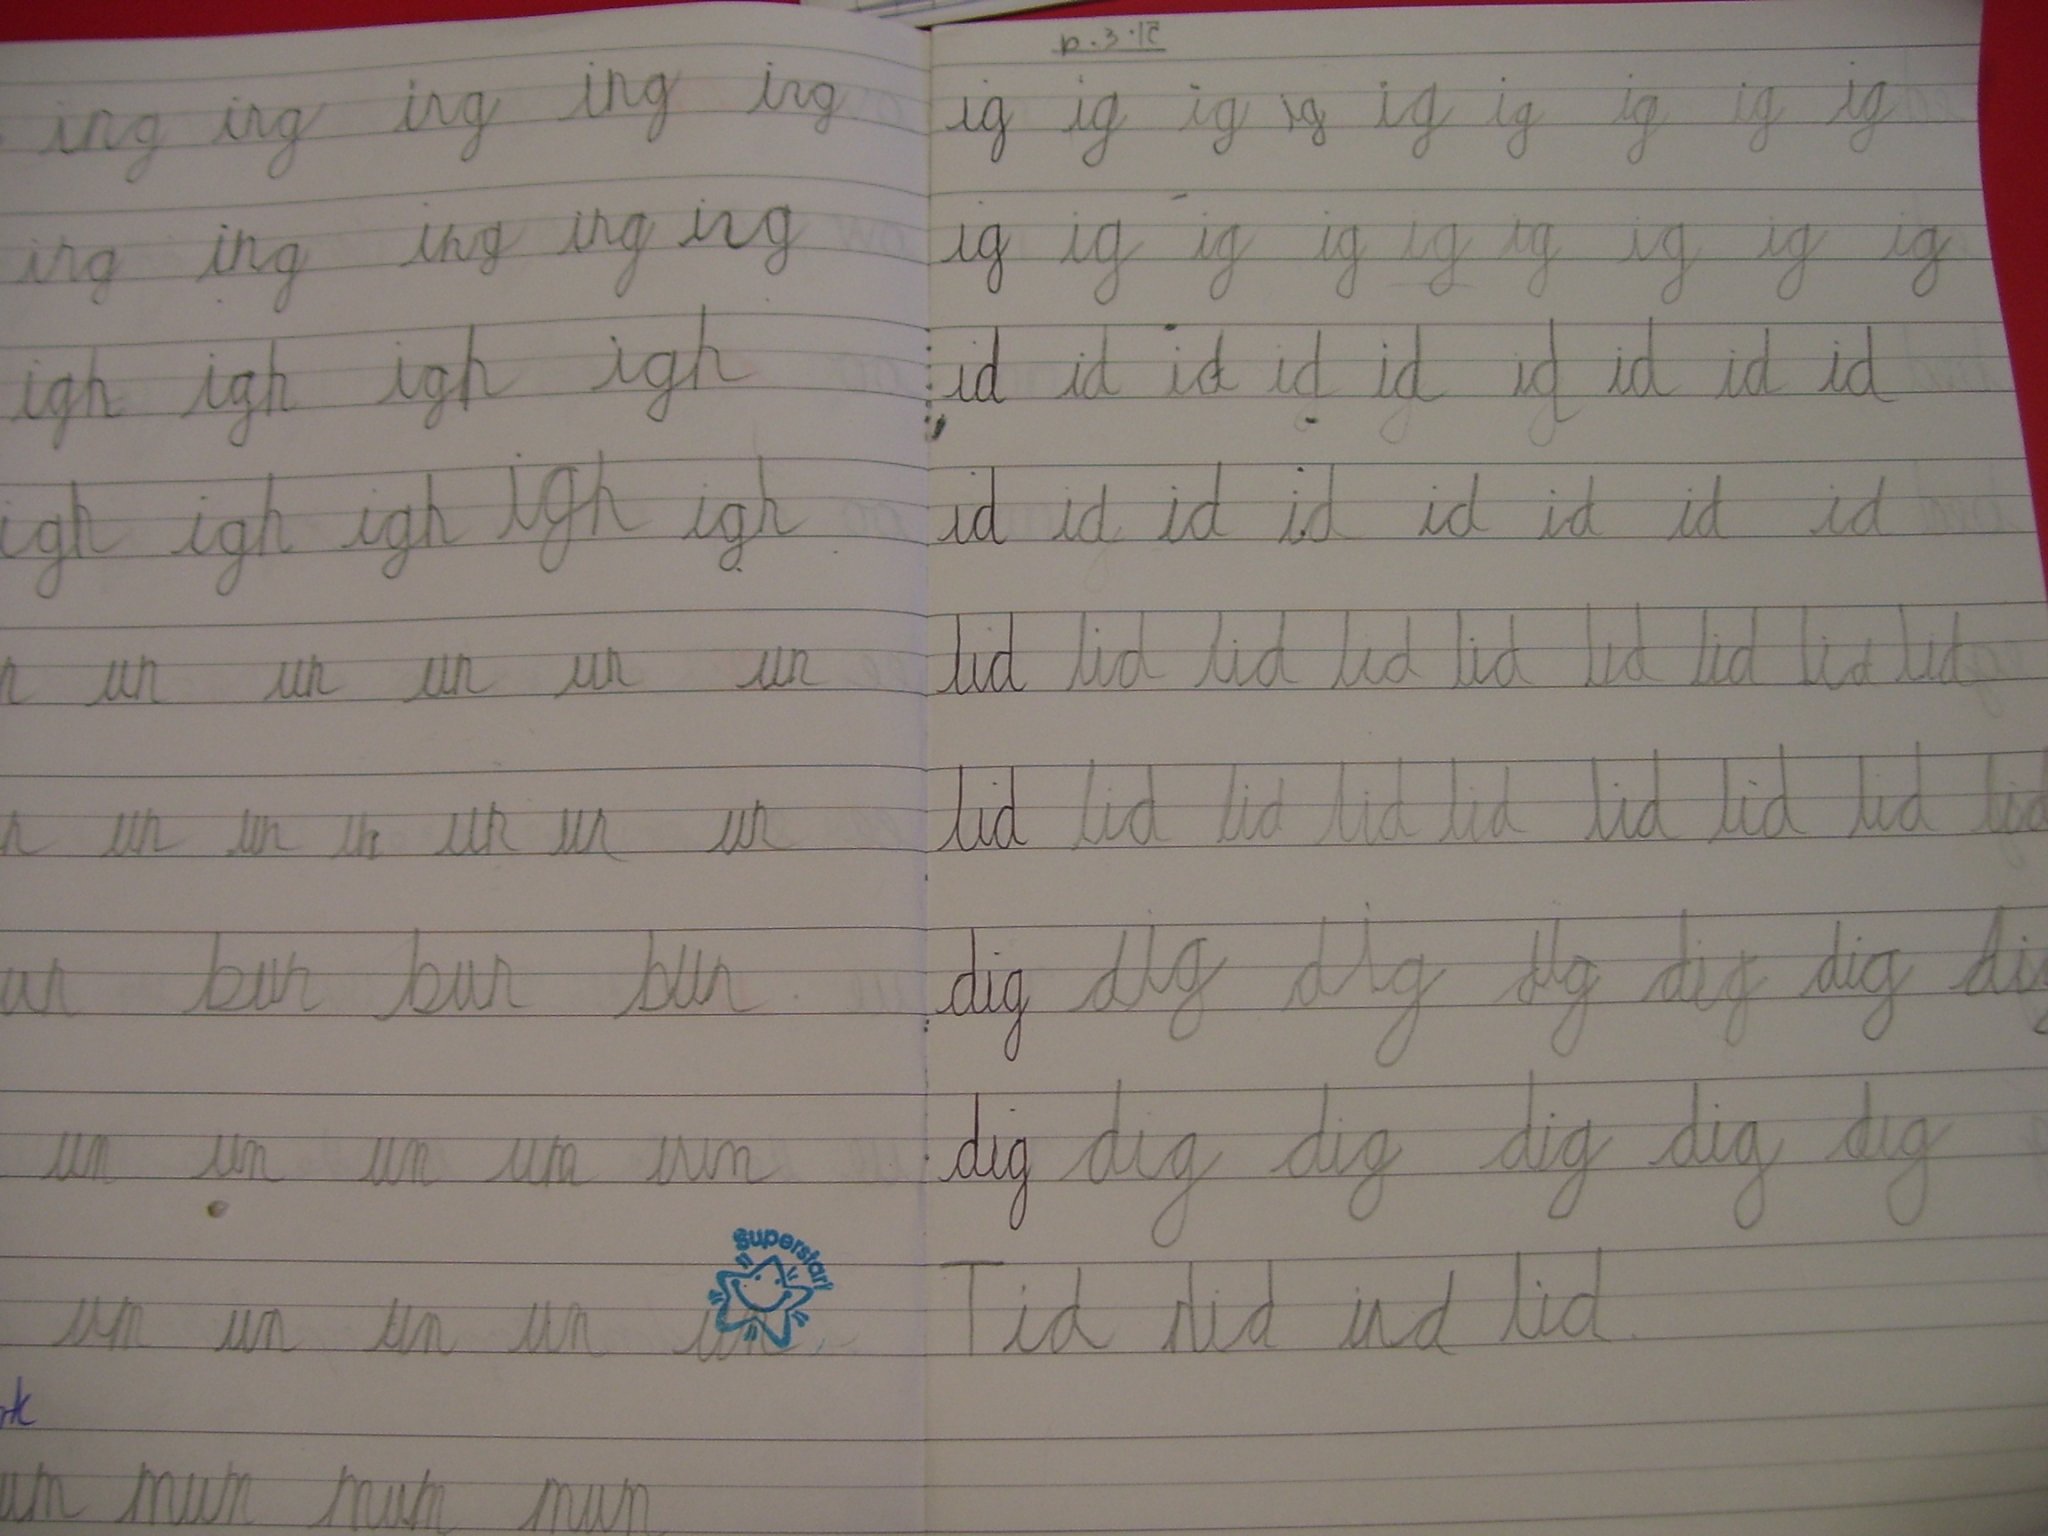 ing ing ing ing ing
ing ing ing ing ing
igh igh igh igh
igh igh igh igh igh
un un un un un
un un un un un un
bun bun bun
un un un um
superstar!
um un un un un
mum mum mum
ig ig ig ig ig ig ig ig ig
ig ig ig ig ig ig ig ig ig
id id id id id id id id id
id id id id id id id id
lid lid lid lid lid lid lid lid lid
lid lid lid lid lid lid lid lid lid
dig dig dig dig dig dig dig
dig dig dig dig dig dig
Tid Nid ind lid